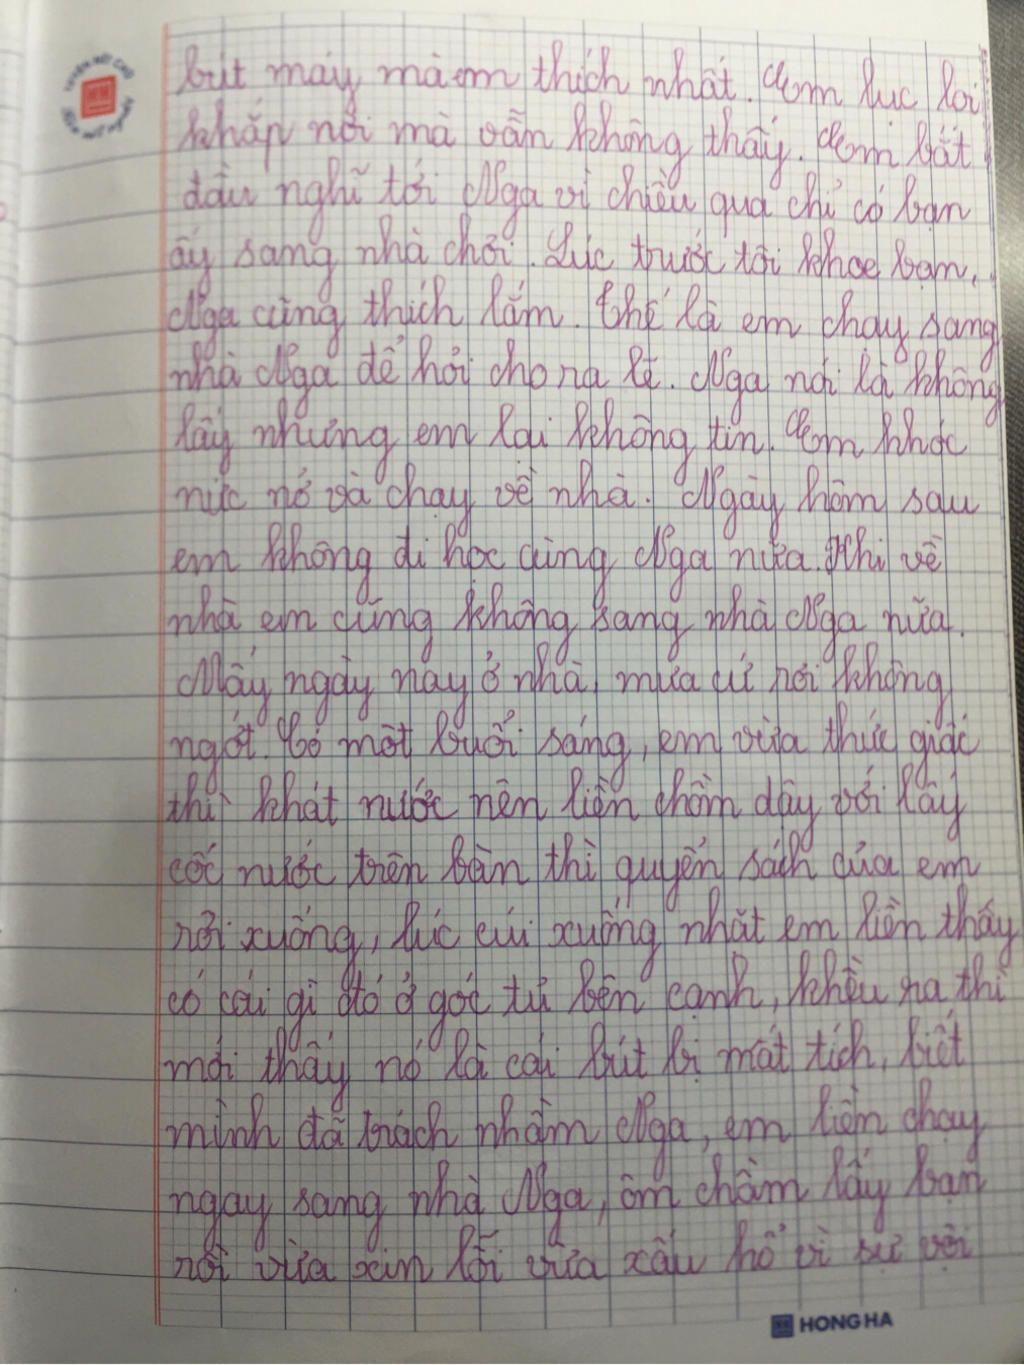 bút máy mà em thích nhất. Em lục lọi
khắp nơi mà vẫn không thấy. Em bắt
đầu nghĩ tới Nga vì chiều qua chỉ có bạn
ấy sang nhà chơi. Lúc trước tôi khoe bạn,
Nga cũng thích lắm. Thế là em chạy sang
nhà Nga để hỏi cho ra lẽ. Nga nói là không
lấy nhưng em lại không tin. Em khóc
nức nở và chạy về nhà. Ngày hôm sau
em không đi học cùng Nga nữa. Khi về
nhà em cũng không sang nhà Nga nữa.
Mấy ngày nay ở nhà, mưa cứ rơi không
ngớt. Có một buổi sáng, em vừa thức giấc
thì khát nước nên liền chồm dậy với lấy
cốc nước trên bàn thì quyển sách của em
rơi xuống, lúc cúi xuống nhặt em liền thấy
có cái gì đó ở góc tủ bên cạnh, khều ra thì
mới thấy nó là cái bút bị mất tích, biết
mình đã trách nhầm Nga, em liền chạy
ngay sang nhà Nga, ôm chầm lấy bạn
rồi vừa xin lỗi vừa xấu hổ vì sự vội
HONG HA